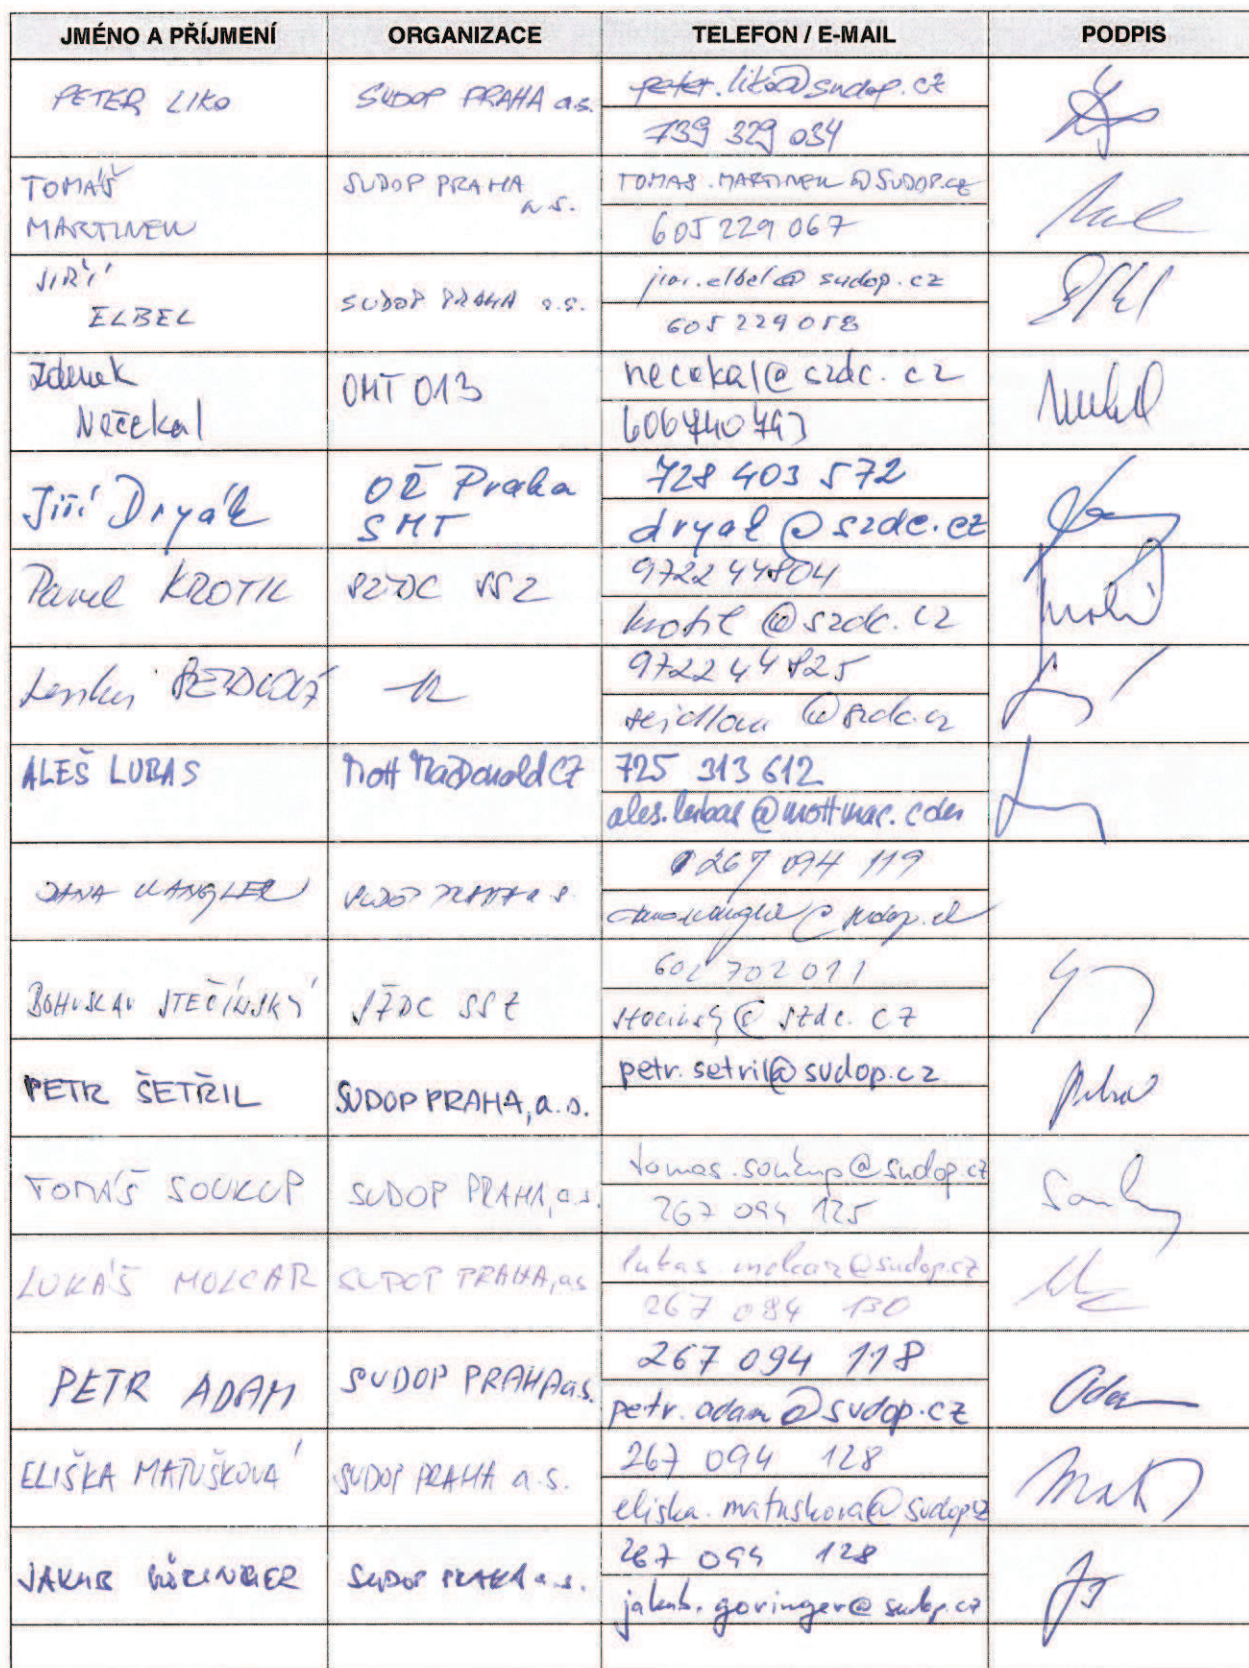 JMÉNO A PŘÍJMENÍ ORGANIZACE TELEFON / E-MAIL PODPIS
PETER LIKO SUDOP PRAHA a.s. peter.liko@sudop.cz
739 329 034
TOMÁŠ SUDOP PRAHA TOMAS.MARTINEK@SUDOP.CZ
MARTINEK a.s. 605 229 067
JIŘÍ jiri.elbel@sudop.cz
ELBEL SUDOP PRAHA a.s. 605 229 058
Zdenek OMT 013 necekal@szdc.cz
Nečekal 606740793
Jiří Dryák OŘ Praha 728 403 572
SMT dryak@szdc.cz
Pavel KROTIL SŽDC SSZ 972244804
krotil@szdc.cz
Lenka 972244825
seidlova@szdc.cz
ALEŠ LUBAS Mott MacDonald CZ 725 313 612
ales.lubas@mottmac.com
DANA WANGLER SUDOP PRAHA a.s. 267 094 119
@sudop.cz
BOHUSLAV STEČÍNSKÝ SŽDC SSZ 602 702 011
stecinsky@szdc.cz
PETR ŠETŘIL SUDOP PRAHA, a.s. petr.setril@sudop.cz
TOMÁŠ SOUKUP SUDOP PRAHA, a.s. tomas.soukup@sudop.cz
267 094 125
LUKÁŠ MOLCAR SUDOP PRAHA, a.s. lukas.molcar@sudop.cz
267 094 130
PETR ADAM SUDOP PRAHA a.s. 267 094 118
petr.adam@sudop.cz Adam
ELIŠKA MATUŠKOVÁ SUDOP PRAHA a.s. 267 094 128
eliska.matuskova@sudop.cz
JAKUB GÖRINGER SUDOP PRAHA a.s. 267 094 128
jakub.goringer@sudop.cz